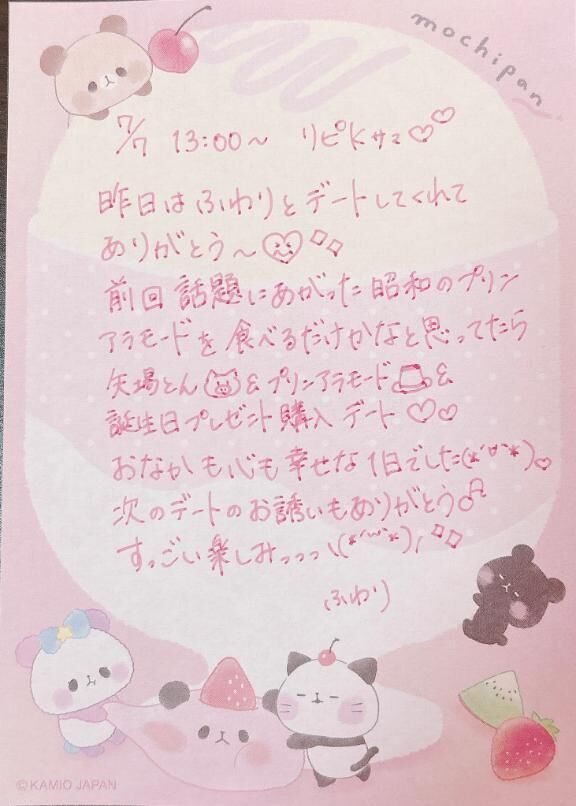 mochipan
7/7 13:00～ リピKサマ♡♡
昨日はふわりとデートしてくれて
ありがとう～♡
前回話題にあがった昭和のプリン
アラモードを食べるだけかなと思ってたら
矢場とん&プリンアラモード&
誕生日プレゼント購入デート♡♡
おなかも心も幸せな1日でした(*´꒳`*)♡
次のデートのお誘いもありがとう♬
すっごい楽しみっっっ\(*´ω`*)/
ふわり
©KAMIO JAPAN